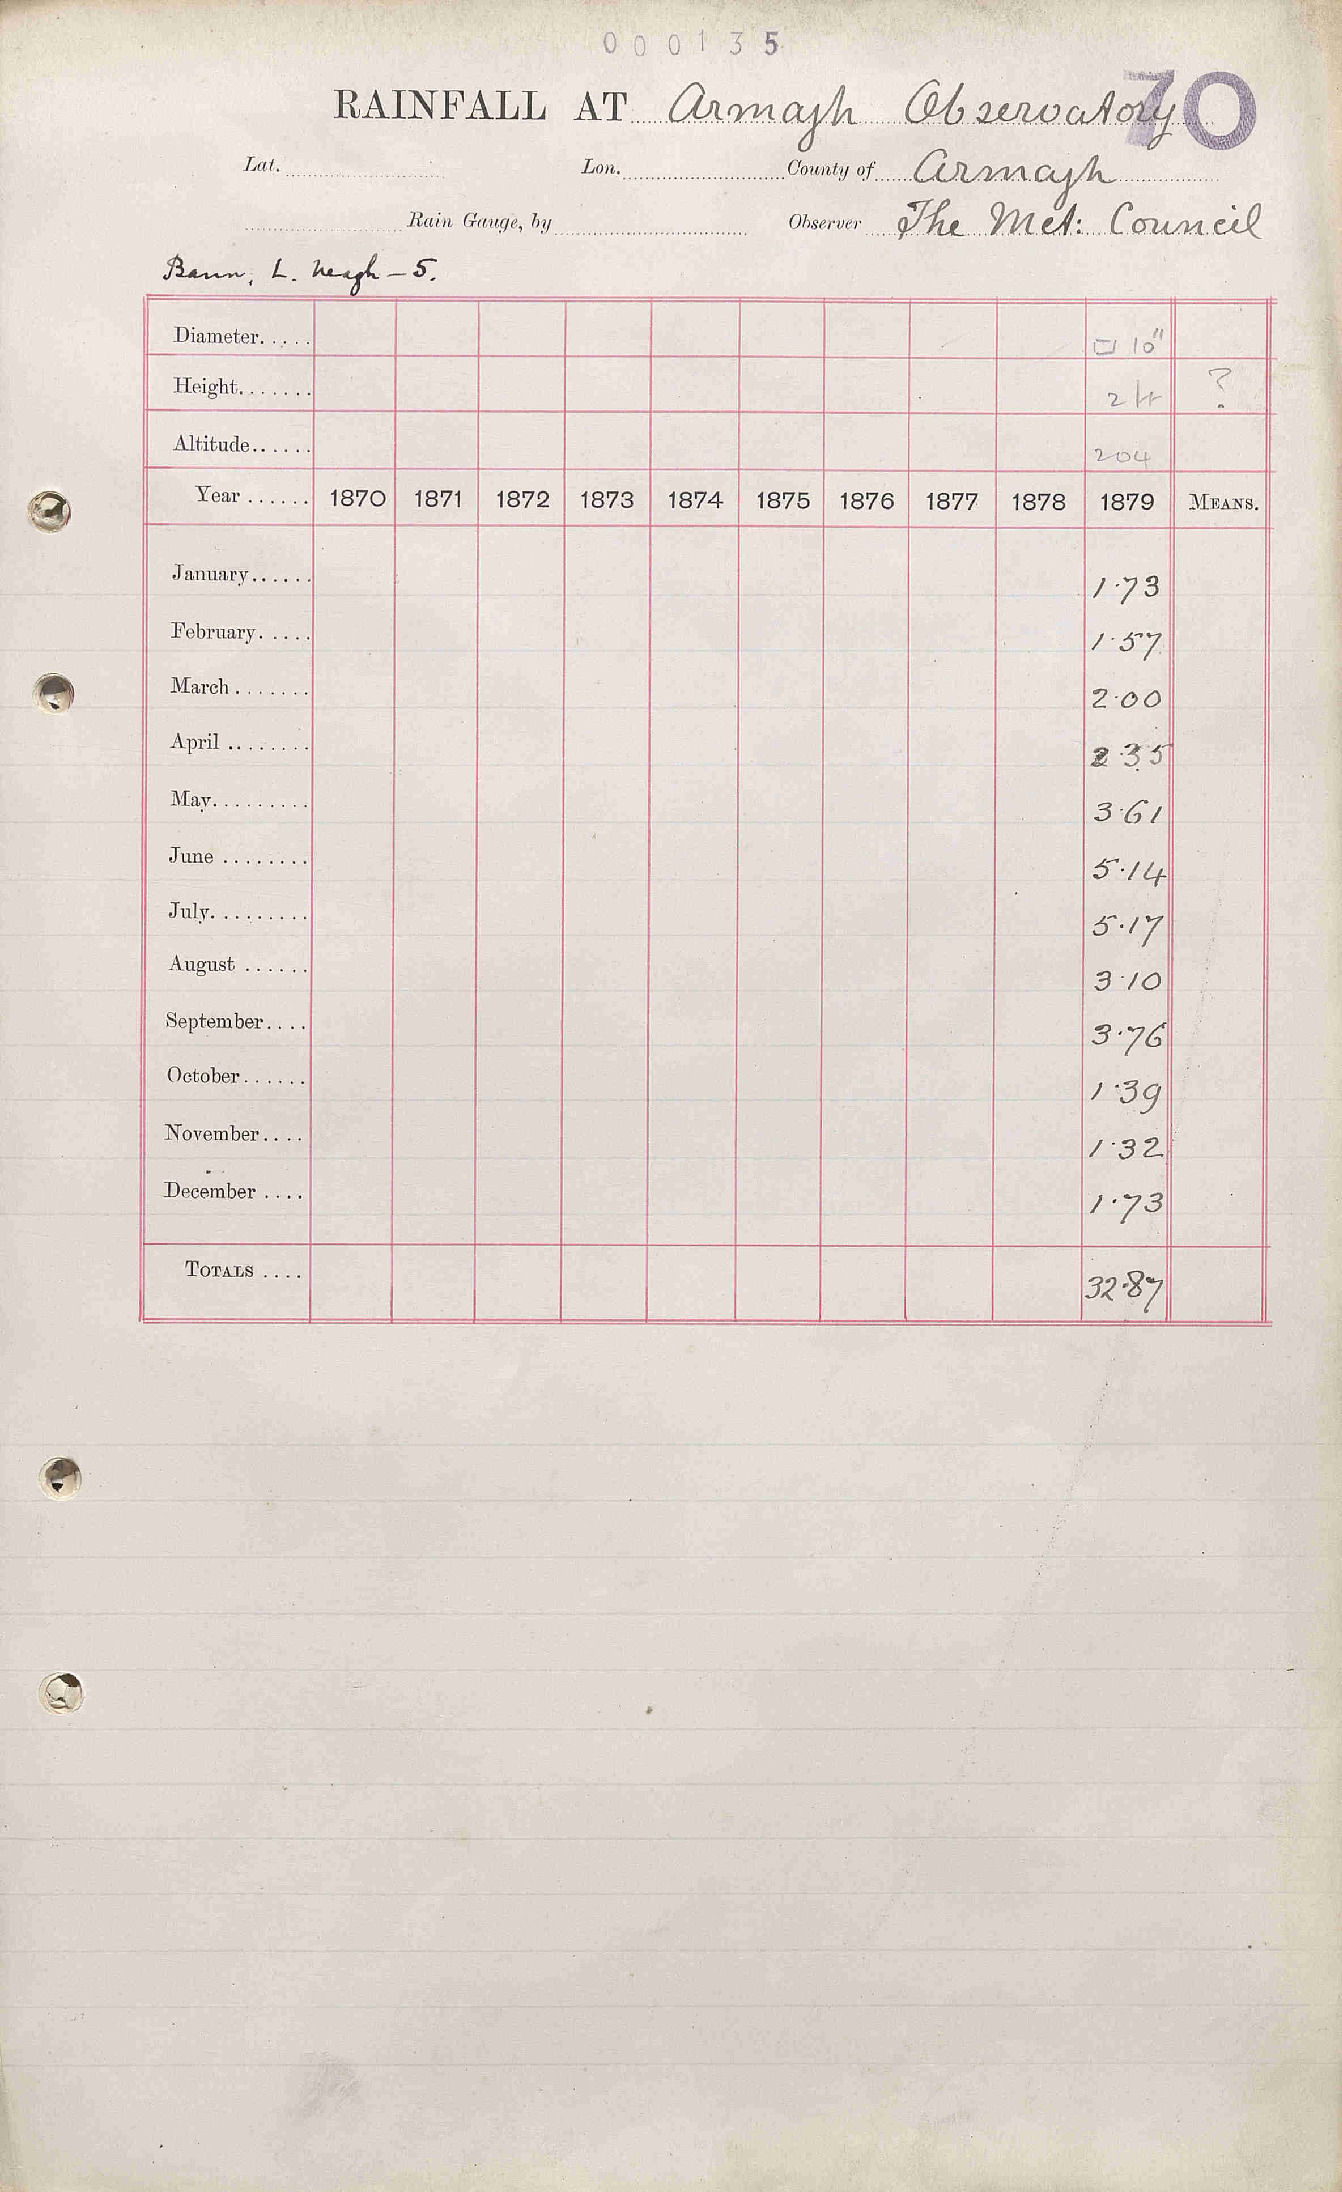 000135
70
RAINFALL AT Armagh Observatory
Lat. Lon. County of Armagh
Rain Gauge, by Observer The Met: Council
Bann, L. Neagh – 5.
Diameter..... □ 10"
Height....... 2 ft ?
Altitude...... 204
Year ...... 1870 1871 1872 1873 1874 1875 1876 1877 1878 1879 MEANS.
January...... 1·73
February..... 1·57
March ....... 2·00
April ........ 2·35
May......... 3·61
June ........ 5·14
July......... 5·17
August ...... 3·10
September.... 3·76
October...... 1·39
November.... 1·32
December .... 1·73
TOTALS .... 32·87